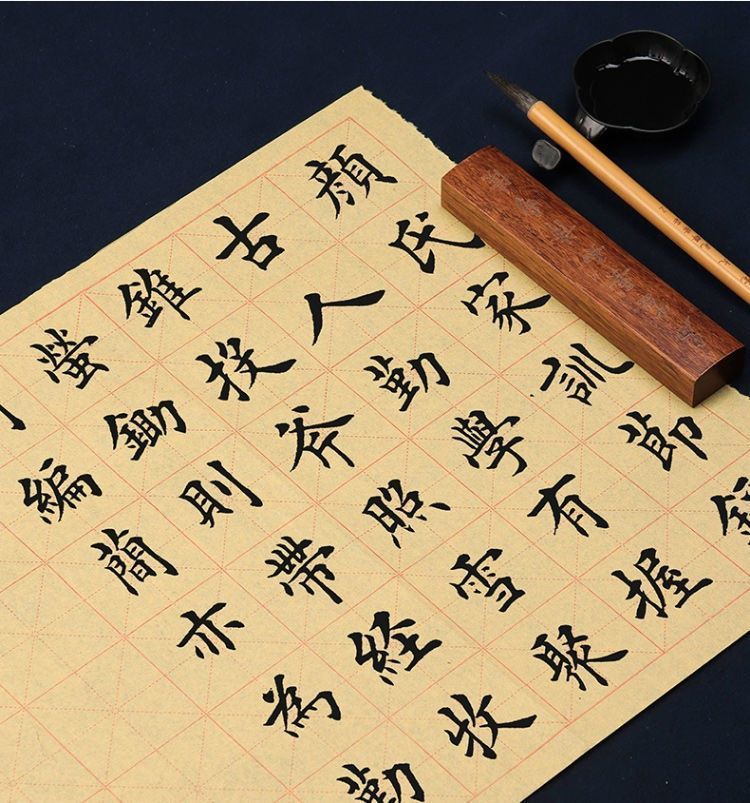 顔氏家訓節
古人勤學有握
錐投斧照雪聚
螢鋤則帶経牧
編簡亦為勤